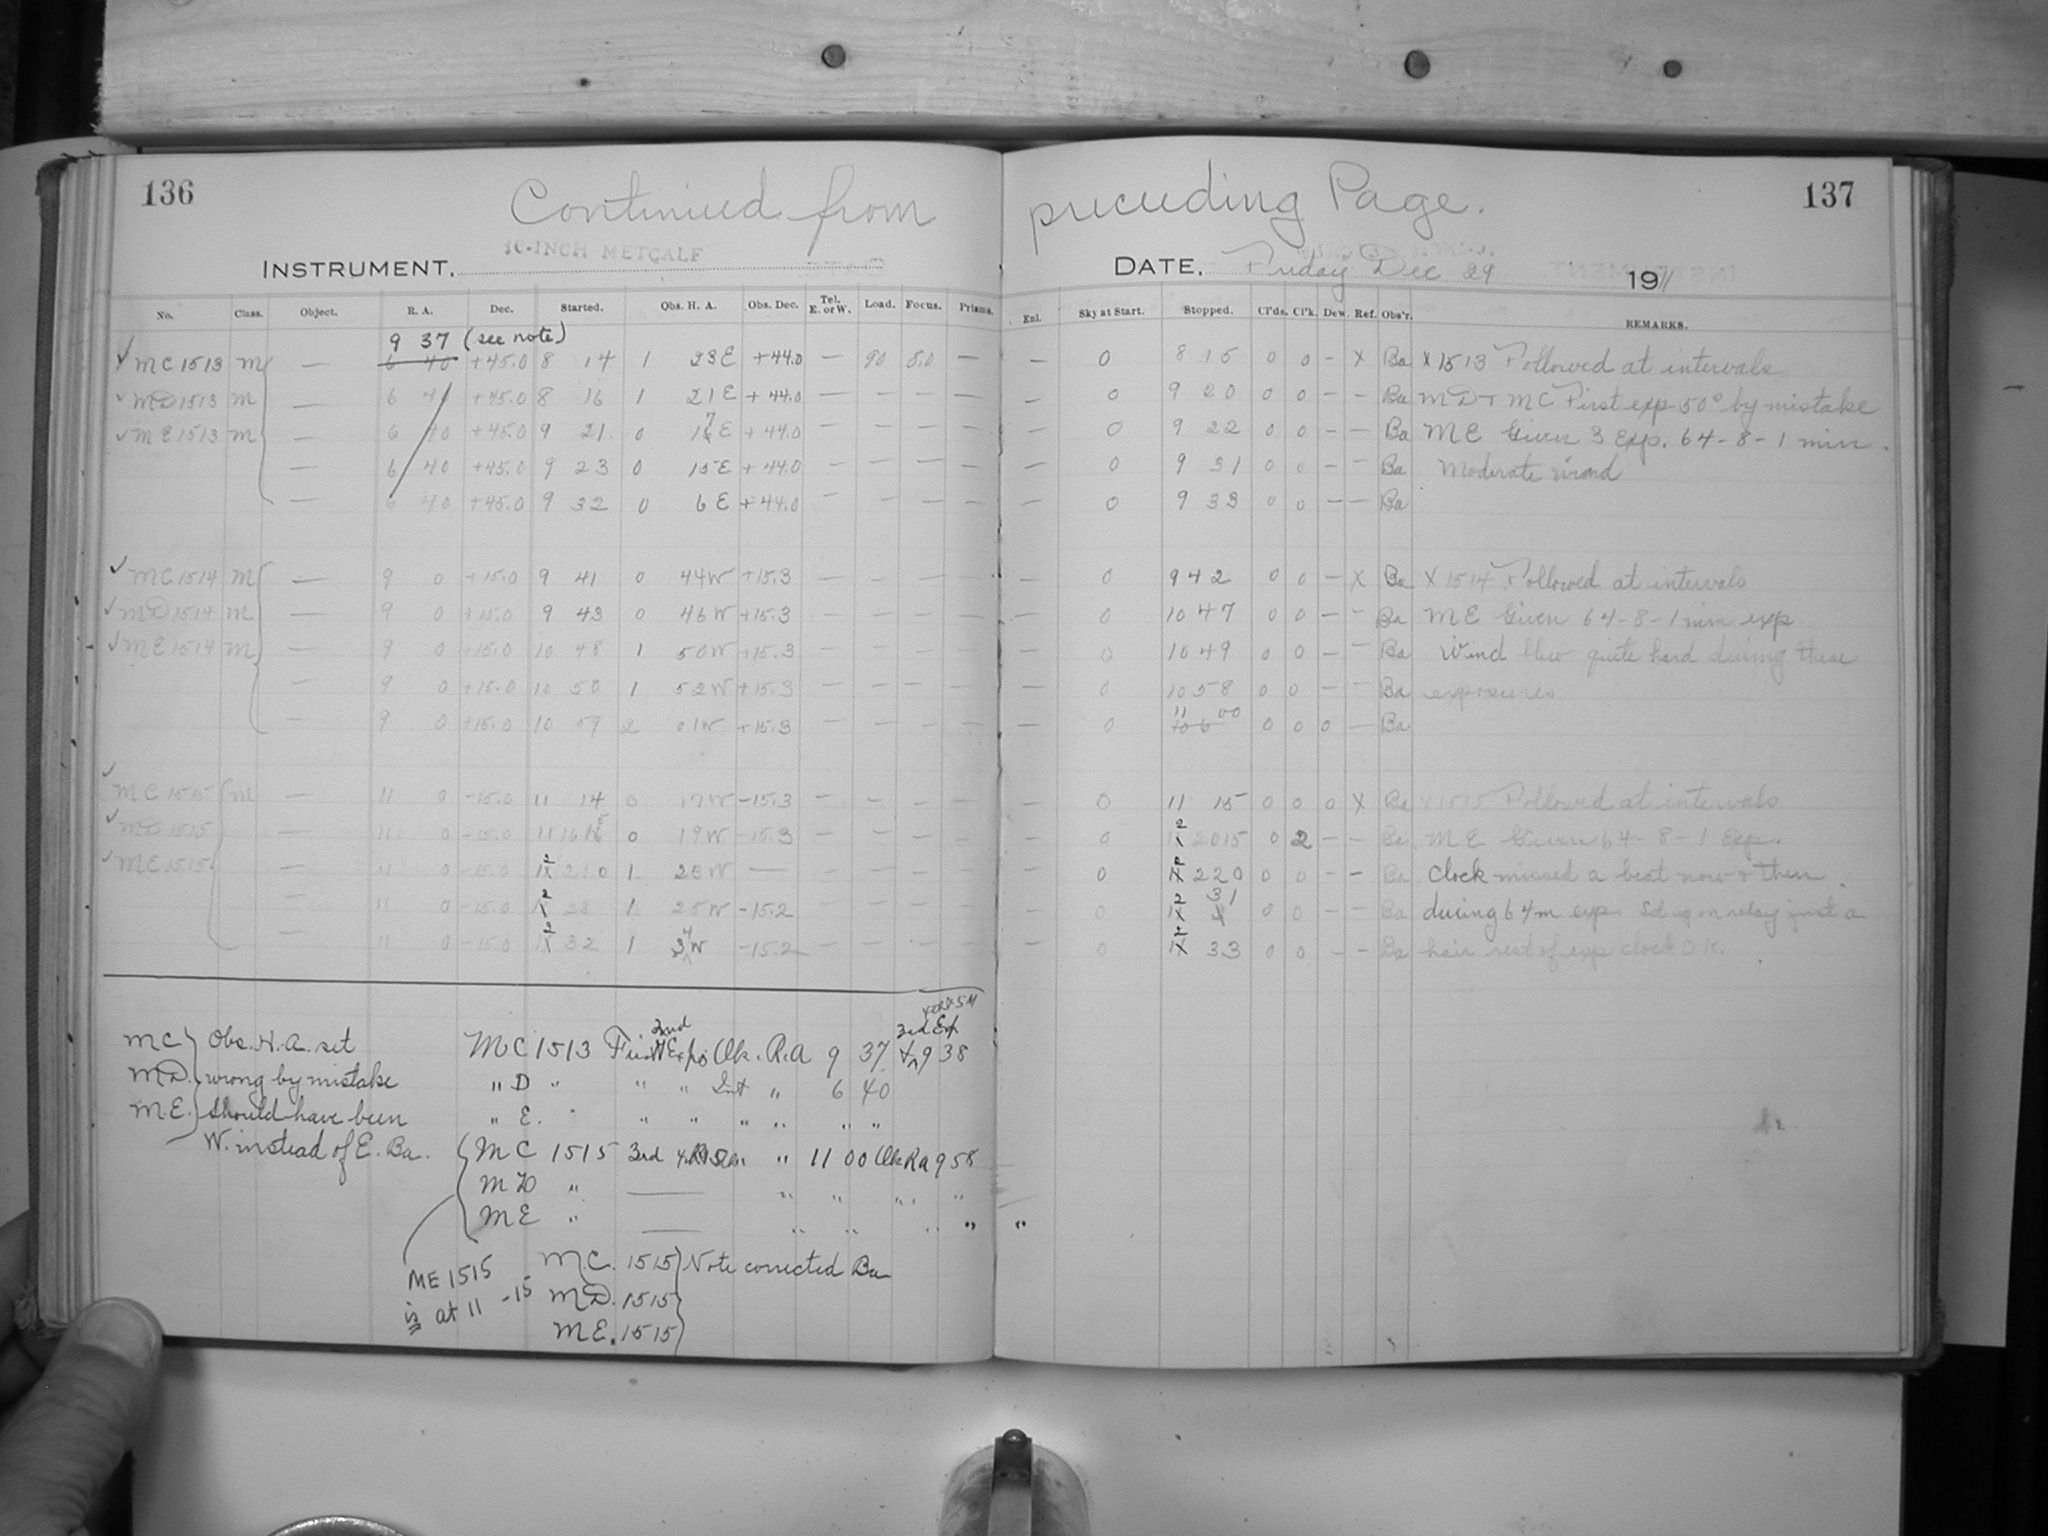 136
Continued from preceeding Page.
137
10-INCH METCALF
INSTRUMENT,
DATE, Friday Dec 29 1911
No. Class. Object. R. A. Dec. Started. Obs. H. A. Obs. Dec. Tel. E. or W. Load. Focus. Prisms. Enl. Sky at Start. Stopped. Cl'ds. Cl'k. Dew. Ref. Obs'r. REMARKS.
9 37 (see note)
MC 1513 M — 6 40 +45.0 8 14 1 23 E +44.0 — 90 8.0 — — 0 8 15 0 0 - X Ba X 1513 Followed at intervals
MD 1513 M — 6 41 +45.0 8 16 1 21 E +44.0 — — — — — 0 9 20 0 0 - - Ba MD + MC First exp 50° by mistake
ME 1513 M — 6 40 +45.0 9 21 0 17 E +44.0 — — — — — 0 9 22 0 0 - - Ba ME Given 3 Exp. 64-8-1 min.
— 6 40 +45.0 9 23 0 15 E +44.0 — — — — — 0 9 31 0 0 - - Ba Moderate wind
— 6 40 +45.0 9 32 0 6 E +44.0 — — — — — 0 9 33 0 0 - - Ba
MC 1514 M — 9 0 +15.0 9 41 0 44 W +15.3 — — — — — 0 9 42 0 0 - X Ba X 1514 Followed at intervals
MD 1514 M — 9 0 +15.0 9 43 0 46 W +15.3 — — — — — 0 10 47 0 0 - - Ba ME Given 64-8-1 min exp
ME 1514 M — 9 0 +15.0 10 48 1 50 W +15.3 — — — — — 0 10 49 0 0 - - Ba Wind blew quite hard during these
— 9 0 +15.0 10 50 1 52 W +15.3 — — — — — 0 10 58 0 0 - - Ba exposures
— 9 0 +15.0 10 59 2 01 W +15.3 — — — — — 0 11 00 0 0 0 - Ba
MC 1515 M — 11 0 -15.0 11 14 0 17 W -15.3 — — — — — 0 11 15 0 0 0 X Ba X 1515 Followed at intervals
MD 1515 — 11 0 -15.0 11 16 15 0 19 W -15.3 — — — — — 0 12 20 15 0 2 - - Ba ME Given 64-8-1 Exp.
ME 1515 — 11 0 -15.0 12 21 0 1 23 W — — — — — — 0 12 22 0 0 0 - - Ba Clock missed a beat now & then
— 11 0 -15.0 12 23 1 25 W -15.2 — — — — — 0 12 31 0 0 - - Ba during 64m exp. Set up on relay just a
— 11 0 -15.0 12 32 1 34 W -15.2 — — — — — 0 12 33 0 0 - - Ba hair rest of exp clock O K.
MC Obs. H. A. set
MD. wrong by mistake
ME. Should have been
W. instead of E. Ba.
2nd 3rd Exp
MC 1513 First Exp. Ok. R.A 9 37 + 9 38
" D " " " " 6 40
" E. " " " " " " "
MC 1515 3rd " 11 00 Ok Ra 9 58
MD " — " " " "
ME " — " " " " "
ME 1515
is at 11 -15
MC. 1515 Note corrected Ba
MD. 1515
ME. 1515